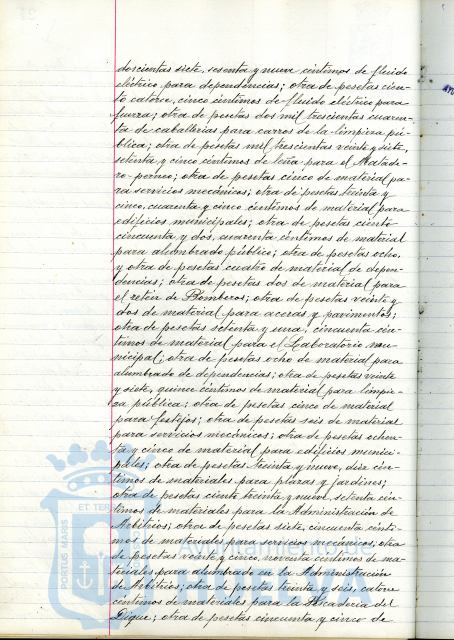 doscientas siete, sesenta y nueve céntimos de fluido
eléctrico para dependencias; otra de pesetas cien-
to catorce, cinco céntimos de fluido eléctrico para
fuerza; otra de pesetas dos mil trescientas cuaren-
ta de caballerías para carros de la limpieza pú-
blica; otra de pesetas mil trescientas veinte y siete,
setenta y cinco céntimos de leña para el Matade-
ro-porneo; otra de pesetas cinco de material pa-
ra servicios mecánicos; otra de pesetas treinta y
cinco, cuarenta y cinco céntimos de material para
edificios municipales; otra de pesetas ciento
cincuenta y dos, cuarenta céntimos de material
para alumbrado público; otra de pesetas ocho,
y otra de pesetas cuatro de material de depen-
dencias; otra de pesetas dos de material para
el retén de Bomberos; otra de pesetas veinte y
dos de material para aceras y pavimentos;
otra de pesetas setenta y una, cincuenta cén-
timos de material para el Laboratorio mu-
nicipal; otra de pesetas ocho de material para
alumbrado de dependencias; otra de pesetas veinte
y siete, quince céntimos de material para limpie-
za pública; otra de pesetas cinco de material
para festejos; otra de pesetas seis de material
para servicios mecánicos; otra de pesetas ochen-
ta y cinco de material para edificios munici-
pales; otra de pesetas treinta y nueve, diez cén-
timos de materiales para plazas y jardines;
otra de pesetas ciento treinta y nueve, setenta cén-
timos de materiales para la Administración de
Arbitrios; otra de pesetas siete, cincuenta cénti-
mos de materiales para servicios mecánicos; otra
de pesetas veinte y cinco, noventa céntimos de ma-
teriales para alumbrado en la Administración
de Arbitrios; otra de pesetas treinta y seis, catorce
céntimos de materiales para la Pescadería del
Dique; otra de pesetas cincuenta y cinco de
PORTUS MARIS ET TER